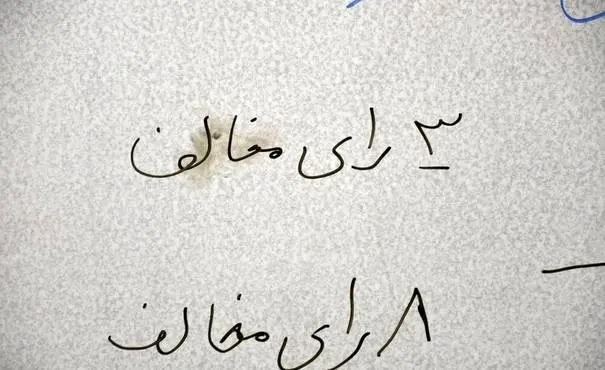 ۳ رای مخالف
۸ رای مخالف